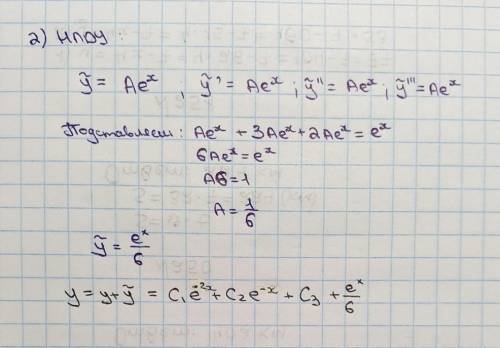 2) НЛДУ:
ỹ = Aeˣ ; ỹ' = Aeˣ ; ỹ'' = Aeˣ ; ỹ''' = Aeˣ
Подставляем: Aeˣ + 3Aeˣ + 2Aeˣ = eˣ
6Aeˣ = eˣ
A6 = 1
A = 1/6
ỹ = eˣ/6
y = y + ỹ = C₁e⁻²ˣ + C₂e⁻ˣ + C₃ + eˣ/6